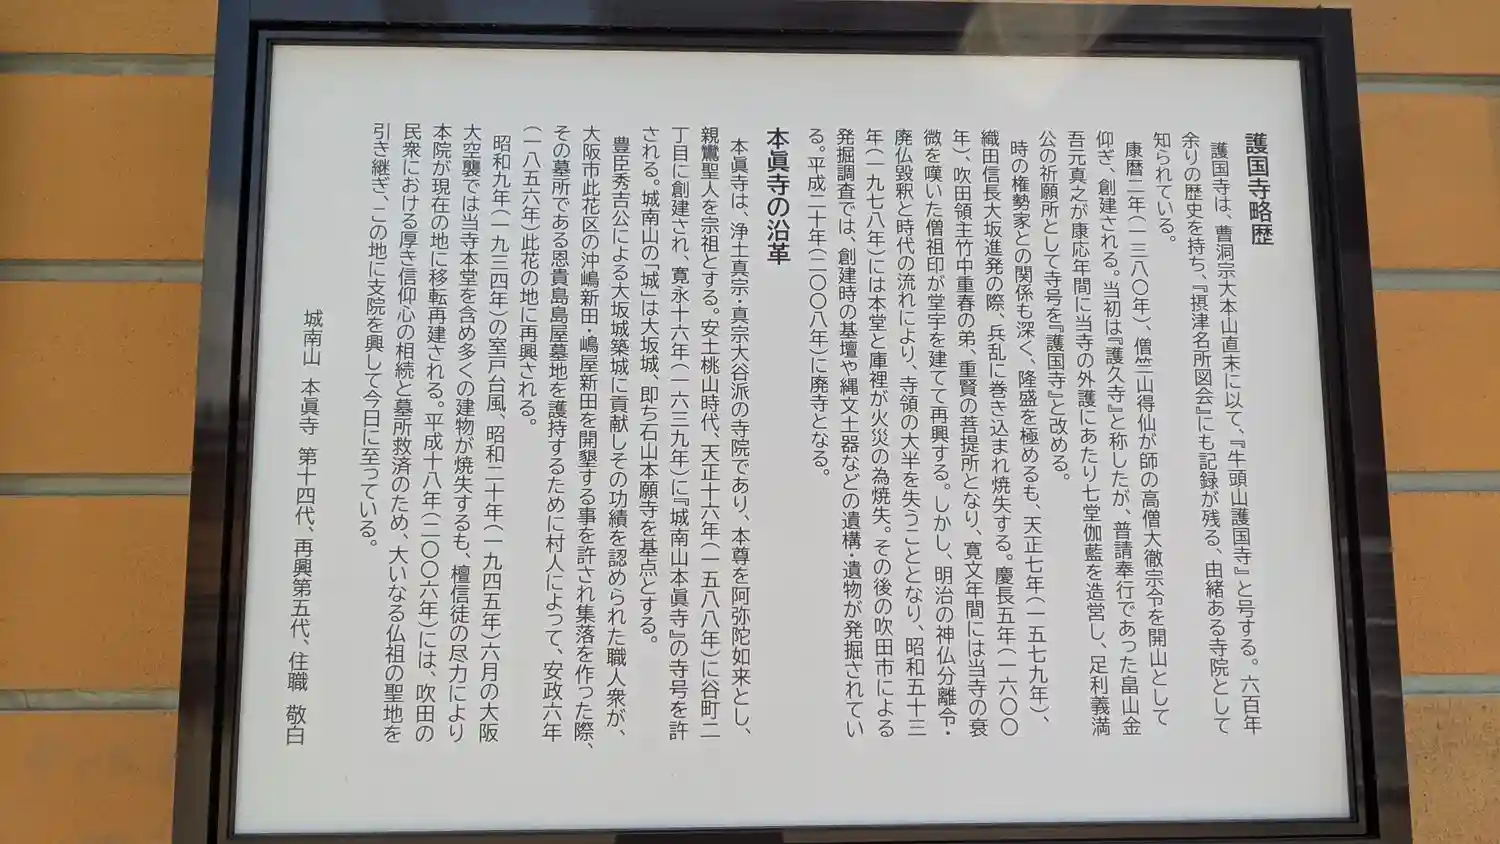 護国寺略歴
護国寺は、曹洞宗大本山直末に以て、『牛頭山護国寺』と号する。六百年
余りの歴史を持ち、『摂津名所図会』にも記録が残る、由緒ある寺院として
知られている。
康暦二年(一三八〇年)、僧竺山得仙が師の高僧大徹宗令を開山として
仰ぎ、創建される。当初は『護久寺』と称したが、普請奉行であった畠山金
吾元真之が康応年間に当寺の外護にあたり七堂伽藍を造営し、足利義満
公の祈願所として寺号を『護国寺』と改める。
時の権勢家との関係も深く、隆盛を極めるも、天正七年(一五七九年)、
織田信長大坂進発の際、兵乱に巻き込まれ焼失する。慶長五年(一六〇〇
年)、吹田領主竹中重春の弟、重賢の菩提所となり、寛文年間には当寺の衰
微を嘆いた僧祖印が堂宇を建てて再興する。しかし、明治の神仏分離令・
廃仏毀釈と時代の流れにより、寺領の大半を失うこととなり、昭和五十三
年(一九七八年)には本堂と庫裡が火災の為焼失。その後の吹田市による
発掘調査では、創建時の基壇や縄文土器などの遺構・遺物が発掘されてい
る。平成二十年(二〇〇八年)に廃寺となる。
本眞寺の沿革
本眞寺は、浄土真宗・真宗大谷派の寺院であり、本尊を阿弥陀如来とし、
親鸞聖人を宗祖とする。安土桃山時代、天正十六年(一五八八年)に谷町二
丁目に創建され、寛永十六年(一六三九年)に『城南山本眞寺』の寺号を許
される。城南山の「城」は大坂城、即ち石山本願寺を基点とする。
豊臣秀吉公による大坂城築城に貢献しその功績を認められた職人衆が、
大阪市此花区の沖嶋新田・嶋屋新田を開墾する事を許され集落を作った際、
その墓所である恩貴島島屋墓地を護持するために村人によって、安政六年
(一八五六年)此花の地に再興される。
昭和九年(一九三四年)の室戸台風、昭和二十年(一九四五年)六月の大阪
大空襲では当寺本堂を含め多くの建物が焼失するも、檀信徒の尽力により
本院が現在の地に移転再建される。平成十八年(二〇〇六年)には、吹田の
民衆における厚き信仰心の相続と墓所救済のため、大いなる仏祖の聖地を
引き継ぎ、この地に支院を興して今日に至っている。
城南山 本眞寺 第十四代、再興第五代、住職 敬白